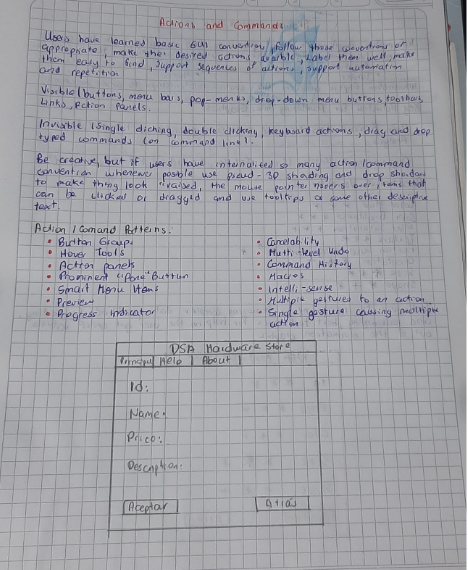 Actions and Commands
Users have learned basic GUI convention, follow those conventions or
appropriate, make the desired actions avarible, Label them well, make
them easy to find, support sequences of actions, support automation
and repetition.
Visible (buttons, menu bars, pop-menks, drop-down menu buttons, toolbars,
Links, Action Panels.
Invisible (Single cliching, double clicking, Keyboard actions, drag and drop
typed commands (on command line).
Be creative, but if users have internalized so many action/command
convention whenever posible use pseud-3D shading and drop shadow
to make thing look "raised, the mouse pointer hovers over items that
can be clicked or dragged and use tooltips or some other descriptive
text.
Action / Comand Patterns.
• Button Groups
• Hover Tools
• Action panels
• Prominent "Done" Button
• Smart Menu Items
• Preview
• Progress indicator
• Cancelability
• Multi-level Undo
• Command History
• Macros
• Intelli-sense
• Multiple gestures to an action
• Single gesture causing multiple
action
DSA Hardware Store
Principal Help About
Id:
Name:
Price:
Description:
Aceptar
Atras